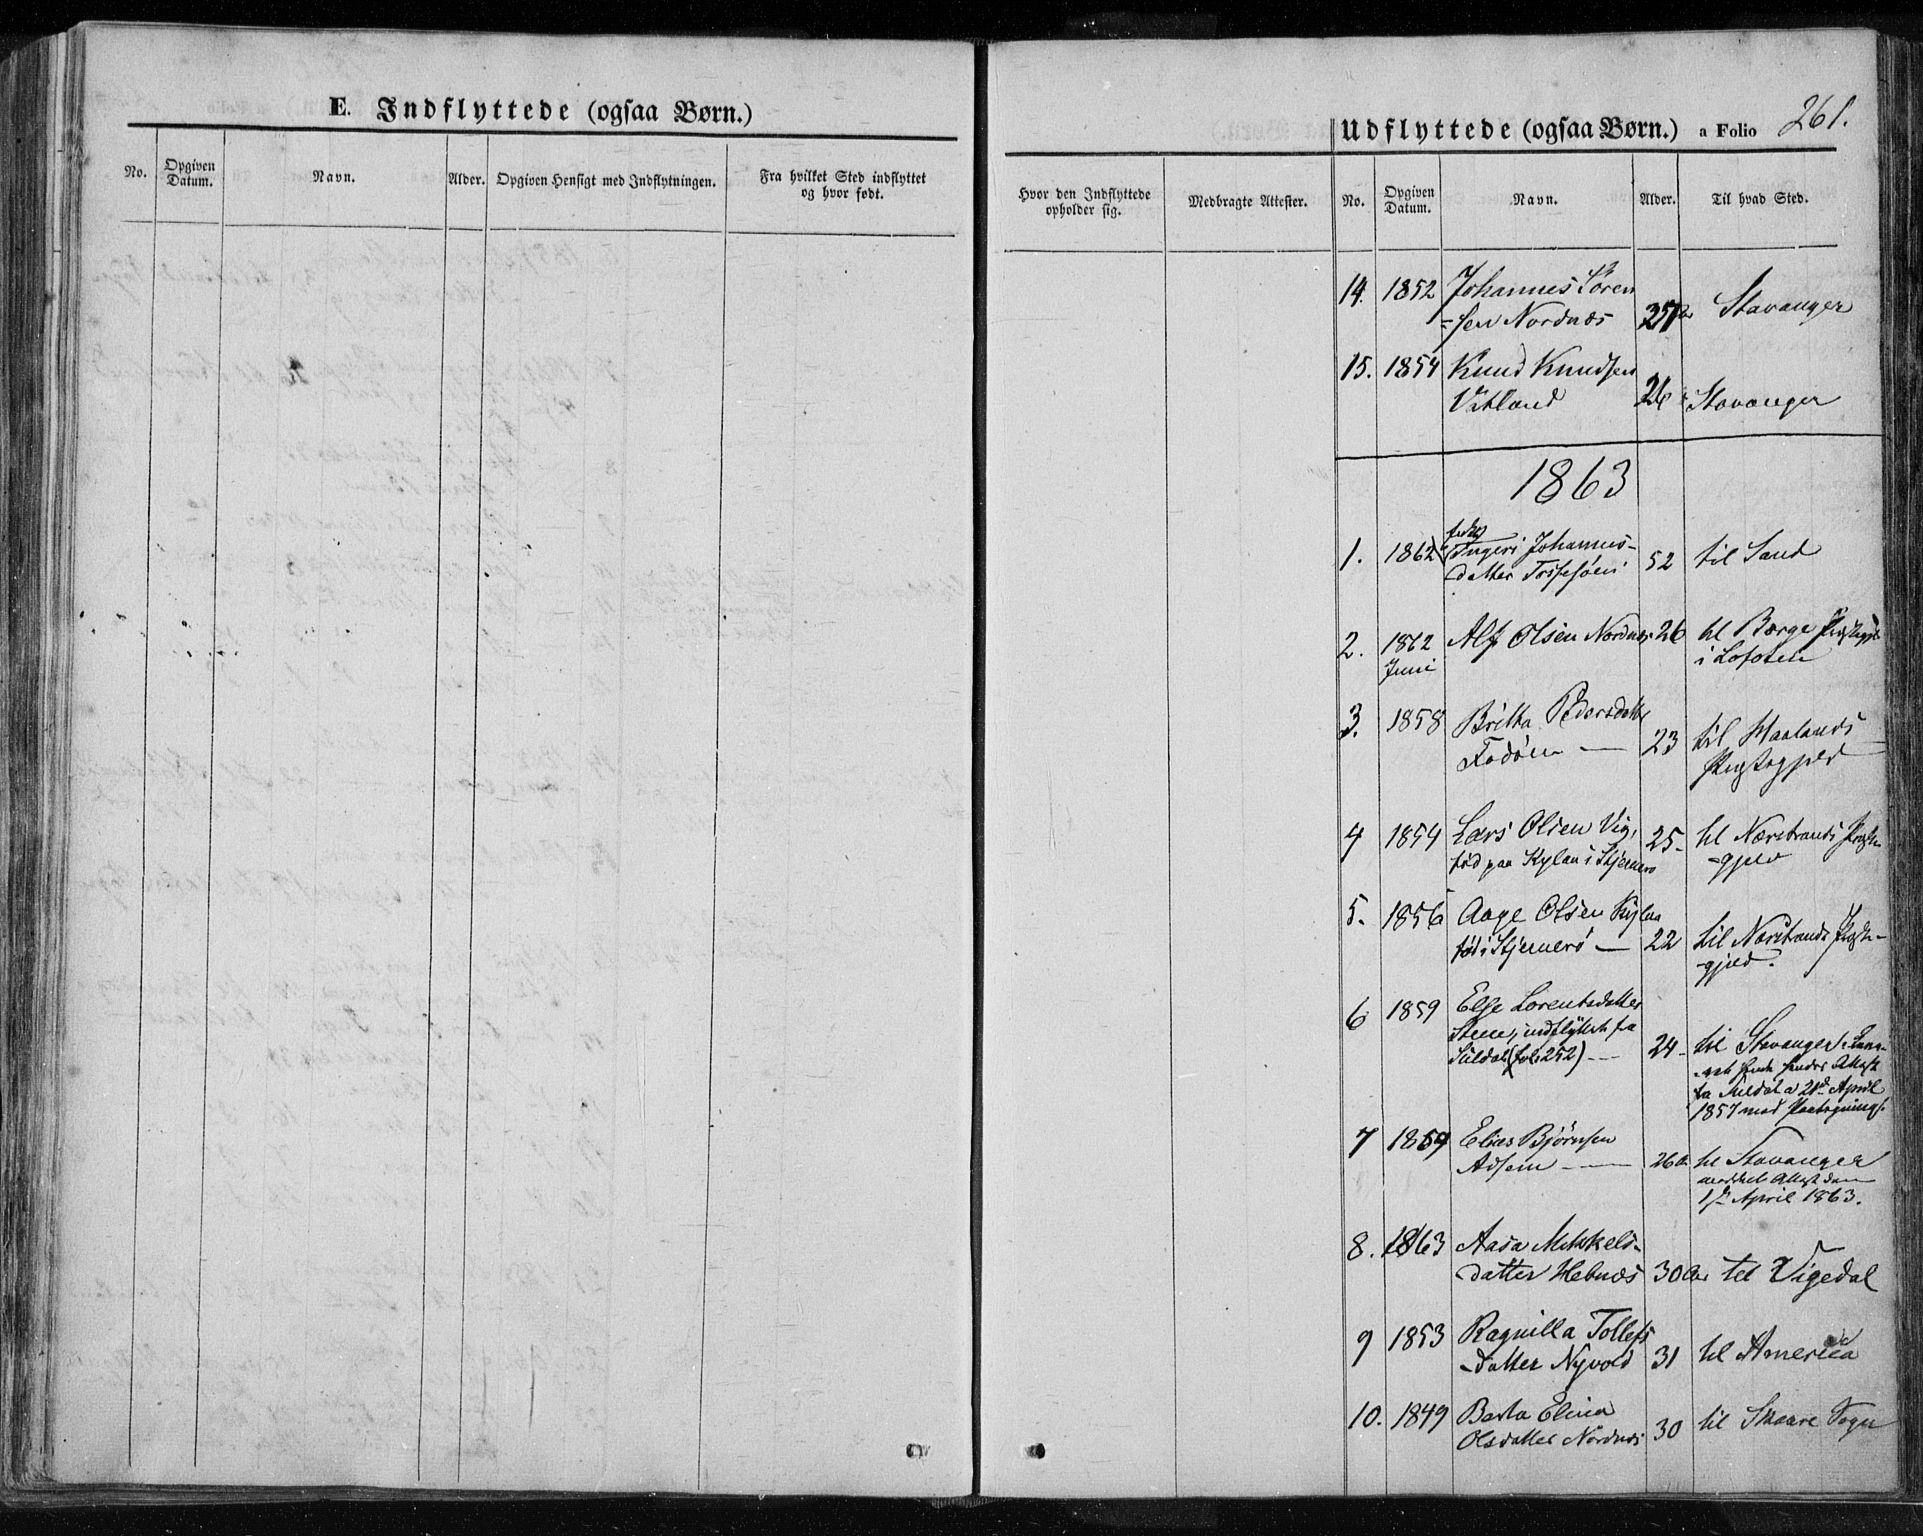 E. Indflyttede (ogsaa Børn.)
No.
Opgiven
Datum.
Navn.
Alder.
Opgiven Hensigt med Indflytningen.
Fra hvilket Sted indflyttet
og hvor født.
Udflyttede (ogsaa Børn.) a Folio 261.
Hvor den Indflyttede
opholder sig.
Medbragte Attester.
No.
Opgiven
Datum.
Navn.
Alder.
Til hvad Sted.
14. 1852 Johannes Sören
=sen Nordnæs Stavanger
15. 1854 Knud Knudsen
Vatland 26 Stavanger
1863
1. 1862 Ingeri Johannes-
datter 52 til Sand
2. 1862 Alf Olsen Nordnæs 26 til Borge Præstegjeld
Juni i Lofoten
3. 1858 Britha Pedersdatter
Fodöen — 23 til Haalands
Præstegjeld
4 1854 Lars Olsen Vig,
fød paa Kylan i Stjernerø 25- til Nærstrands Præste-
-gjeld
5. 1856 Aage Olsen Kylaa
fød i Stjernerö — 22 til Nærstrands Præste-
-gjeld.
6 1859 Else Lorentsdatter
Stene, indflyttet fra
Suldal (fol. 252) — 24- til Stavanger.
Attest
fra Suldal a 21de April
1857 med Paategning.
7 1859 Elias Björnsen
— 26 til Stavanger
meddelt Attest den
April 1863.
8. 1863 Aasa Mikkels-
datter Hebnæs 30 Aar til Vigedal
9 1853 Ragnilla Tollefs
-datter Nyvold 31 til America
10. 1849 Berta Elina
Olsdatter Nordnæs 30 til Skaare Sogn